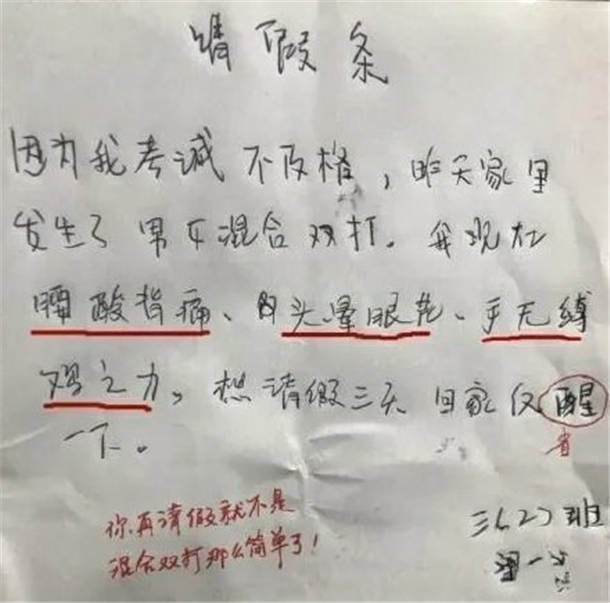 请假条
因为我考诫不及格,昨天家里
发生了男女混合双打。我现在
腰酸背痛、头晕眼花、手无缚
鸡之力,想请假三天回家反醒
一下。
省
你再请假就不是
混合双打那么简单了!
三(2)班